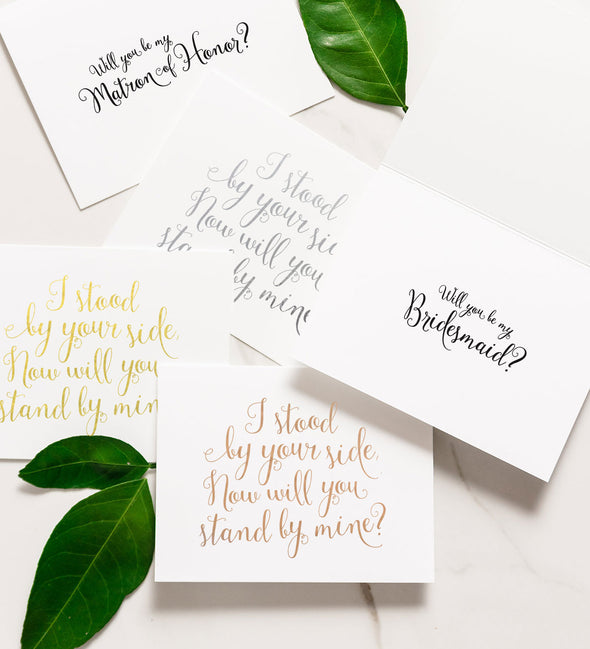 Will you be my
Matron of Honor?
I stood
by your side,
Now will you
stand by mine
Will you be my
Bridesmaid?
I stood
by your side,
Now will you
stand by mine
I stood
by your side,
Now will you
stand by mine?